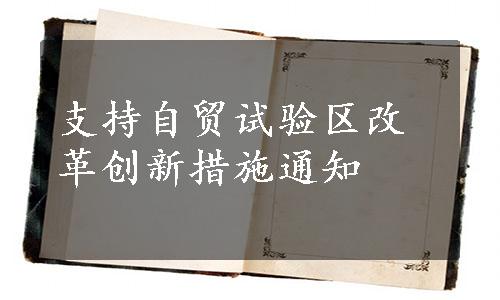 支持自贸试验区改
革创新措施通知